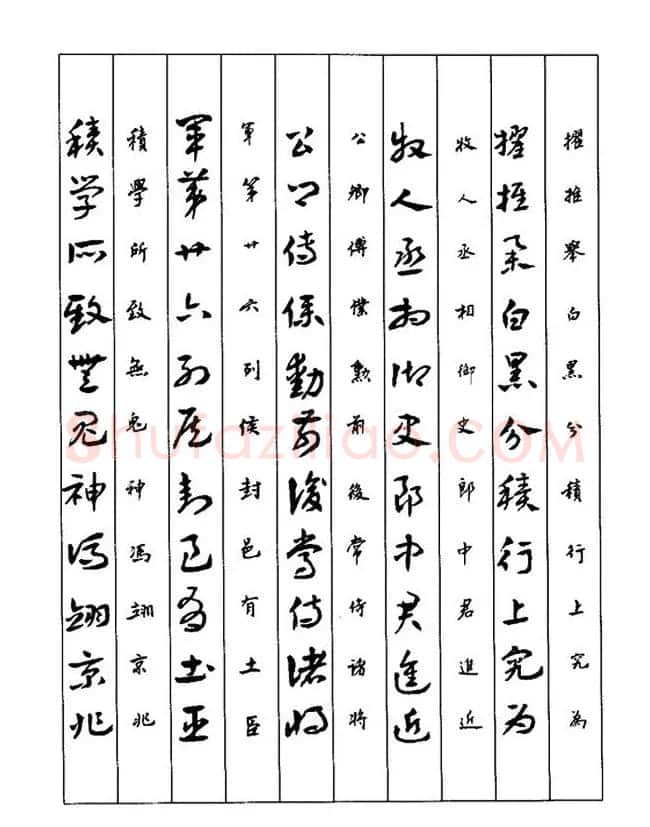 擢推舉白黑分積行上究為
擢推舉白黑分積行上究為
牧人丞相御史郎中君進近
牧人丞相御史郎中君進近
公卿傅僕勳前後常侍諸將
公卿傅僕勳前後常侍諸將
軍第廿六列侯封邑有土臣
軍第廿六列侯封邑有土臣
積學所致無鬼神馮翊京兆
積學所致無鬼神馮翊京兆
Shufaziliao.COM